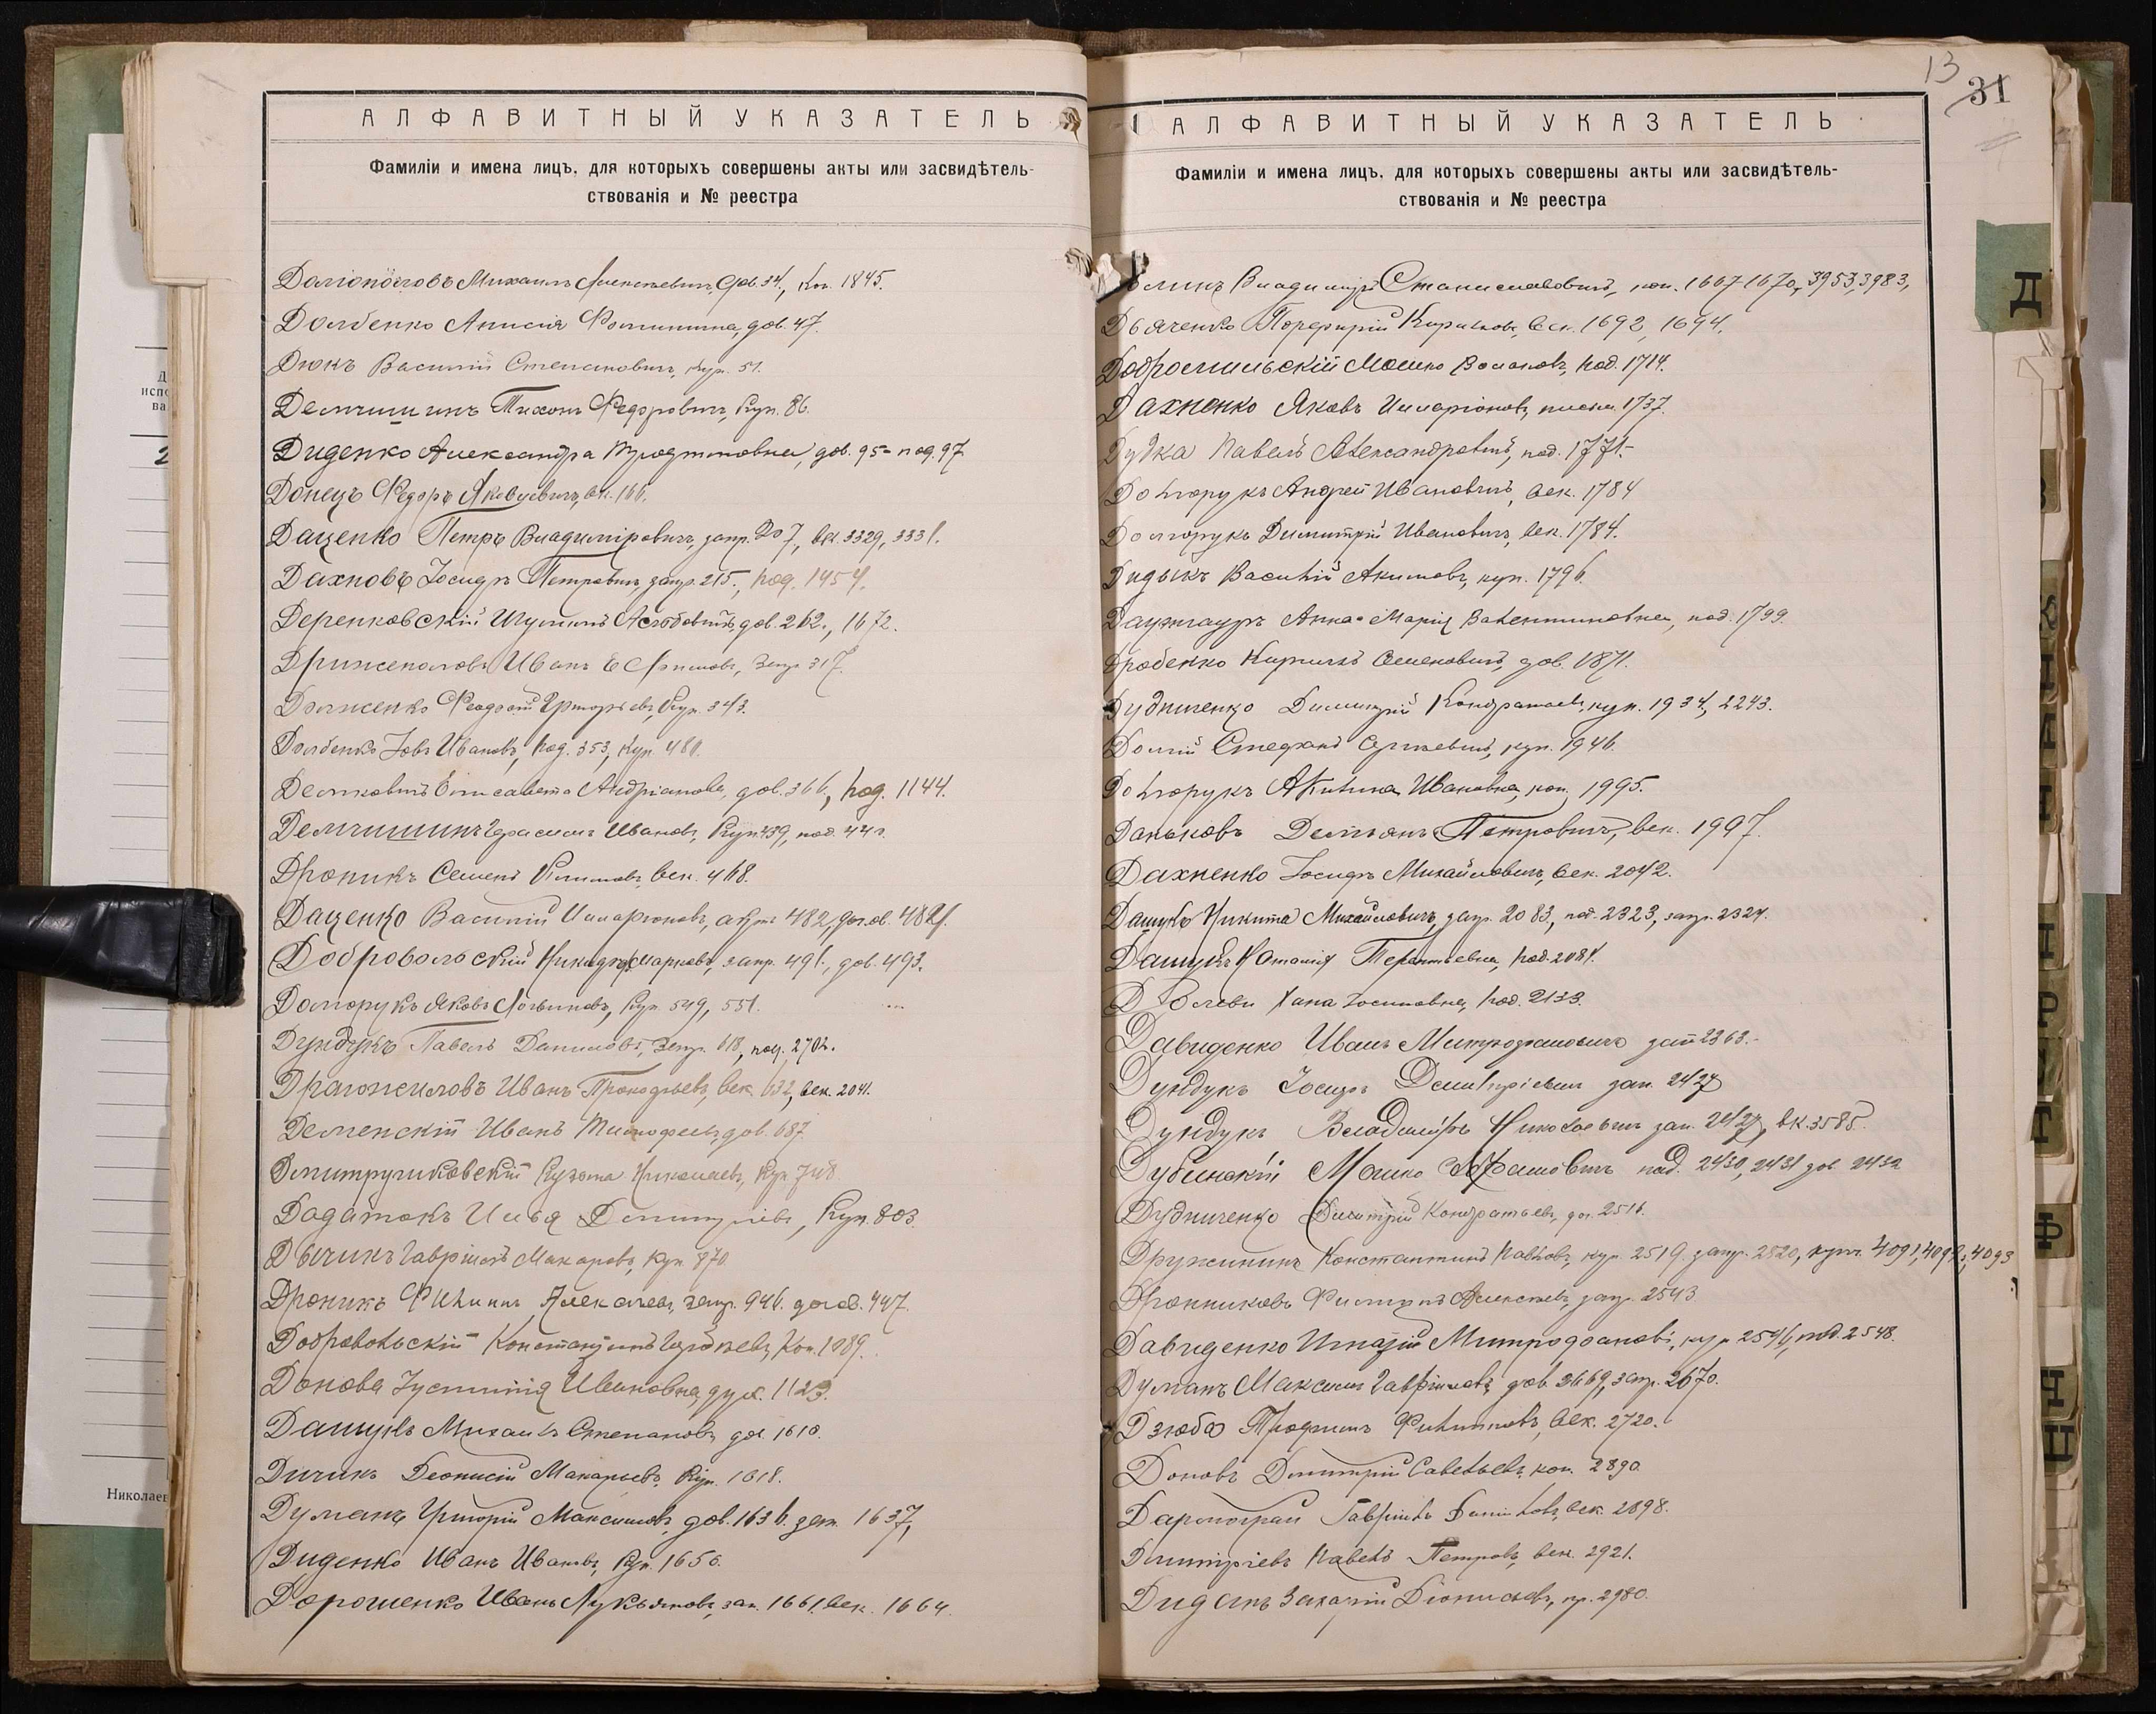 АЛФАВИТНЫЙ УКАЗАТЕЛЬ
Фамиліи и имена лицъ, для которыхъ совершены акты или засвидѣтель-
ствованія и № реестра
Михаилъ Алексѣевичъ, дов. 34, 1845.
Долбенко Анисія дов. 47.
Дюкъ Василій Степановичъ, куп. 51.
Демчишинъ Тихонъ Федоровичъ, куп. 86.
Диденко Александра дов. 95 - под. 97
Донецъ Федоръ Яковлевичъ, век. 166.
Даценко Петръ Владиміровичъ, запр. 207, век. 3329, 3331.
Дахновъ Іосифъ Петровичъ, запр. 215, под. 1454.
Деренковскій дов. 262, 1672.
Иванъ запр. 317.
Долженко Федосій Григорьевъ, куп. 343.
Долбенко Іовъ Ивановъ, под. 353, куп. 480.
Елисавета Андріанова, дов. 366, под. 1144.
Демчишинъ Герасимъ Ивановъ, куп. 439, под. 441.
Дроникъ Семенъ Климовъ, век. 468.
Даценко Василій Иларіоновъ, актъ 482, 482/.
Добровольскій Никифоръ Марковъ, запр. 491, дов. 493.
Долгорукъ Яковъ Логвиновъ, куп. 549, 551.
Дундукъ Павелъ Даниловъ, запр. 618, под. 2702.
Драгожиловъ Иванъ Прокофьевъ, век. 632, век. 2041.
Деменскій Иванъ Тимофеевъ, дов. 687
Кузьма Николаевъ, куп. 748
Додатокъ Илья Димитріевъ, куп. 803.
Дычикъ Гавріилъ Макаровъ, куп. 870
Дроникъ Филиппъ Алексѣевъ, запр. 946. 947.
Добровольскій Константинъ кон. 1089.
Донова Іустинія Ивановна, дух. 1123.
Дашукъ Михаилъ Степановъ, дог. 1610.
Дичикъ Діонисій Макарьевъ, куп. 1618.
Думанъ Григорій Максимовъ, дов. 1636. зап. 1637,
Диденко Иванъ Ивановъ, куп. 1656.
Дорошенко Иванъ Лукьяновъ, зап. 1661. век. 1664.
13
31
АЛФАВИТНЫЙ УКАЗАТЕЛЬ
Фамиліи и имена лицъ, для которыхъ совершены акты или засвидѣтель-
ствованія и № реестра
Владиміръ Станиславовичъ, коп. 1667-1670, 3953, 3983,
Дьяченко Порфирій Кириловъ, век. 1692, 1694.
Добромильскій Мошко под. 1714.
Дахненко Яковъ Иларіоновъ, 1737.
Дудка Павелъ Александровичъ, под. 1771.
Долгорукъ Андрей Ивановичъ, век. 1784
Долгорукъ Димитрій Ивановичъ, век. 1784.
Дидыкъ Василій Акимовъ, куп. 1796.
Анна-Марія Валентиновна, под. 1799.
Дробенко Кириллъ Семеновичъ, дов. 1871.
Дудниченко Димитрій Кондратьевъ, куп. 1934, 2243.
Долгій Стефанъ Сергѣевичъ, куп. 1946.
Долгорукъ Акилина Ивановна, коп. 1995.
Даньковъ Демьянъ Петровичъ, век. 1997.
Дахненко Іосифъ Михайловичъ, век. 2042.
Дашукъ Никита Михайловичъ, запр. 2083, под. 2323, запр. 2324.
Дашукъ Наталія Терентьевна, под. 2084.
Хана Іосиповна, под. 2133.
Давиденко Иванъ Митрофановичъ зап 2363.
Дундукъ Іосифъ Димитріевичъ зап. 2427
Дундукъ Владиміръ Николаевичъ зап. 2427, вк. 3585.
Дубинскій Мошко под. 2430, 2431 дов. 2432
Дудниченко Димитрій Кондратьевъ, дог. 2516.
Дружининъ Константинъ Павловъ, куп. 2519. запр. 2520, куп. 4091, 4092, 4093
Дронниковъ Филиппъ Алексѣевъ, запр. 2543.
Давиденко Игнатій Митрофановъ, куп 2546, под. 2548.
Думанъ Максимъ Гавриловъ, дов. 2669, запр. 2670.
Дзюба Трофимъ Филипповъ, век. 2720.
Доновъ Димитрій Савельевъ, коп. 2890.
Гавріилъ век. 2898.
Димитріевъ Павелъ Петровъ, век. 2921.
Захарій Діонисьевъ, пр. 2980.
Д
Ф
Николаев